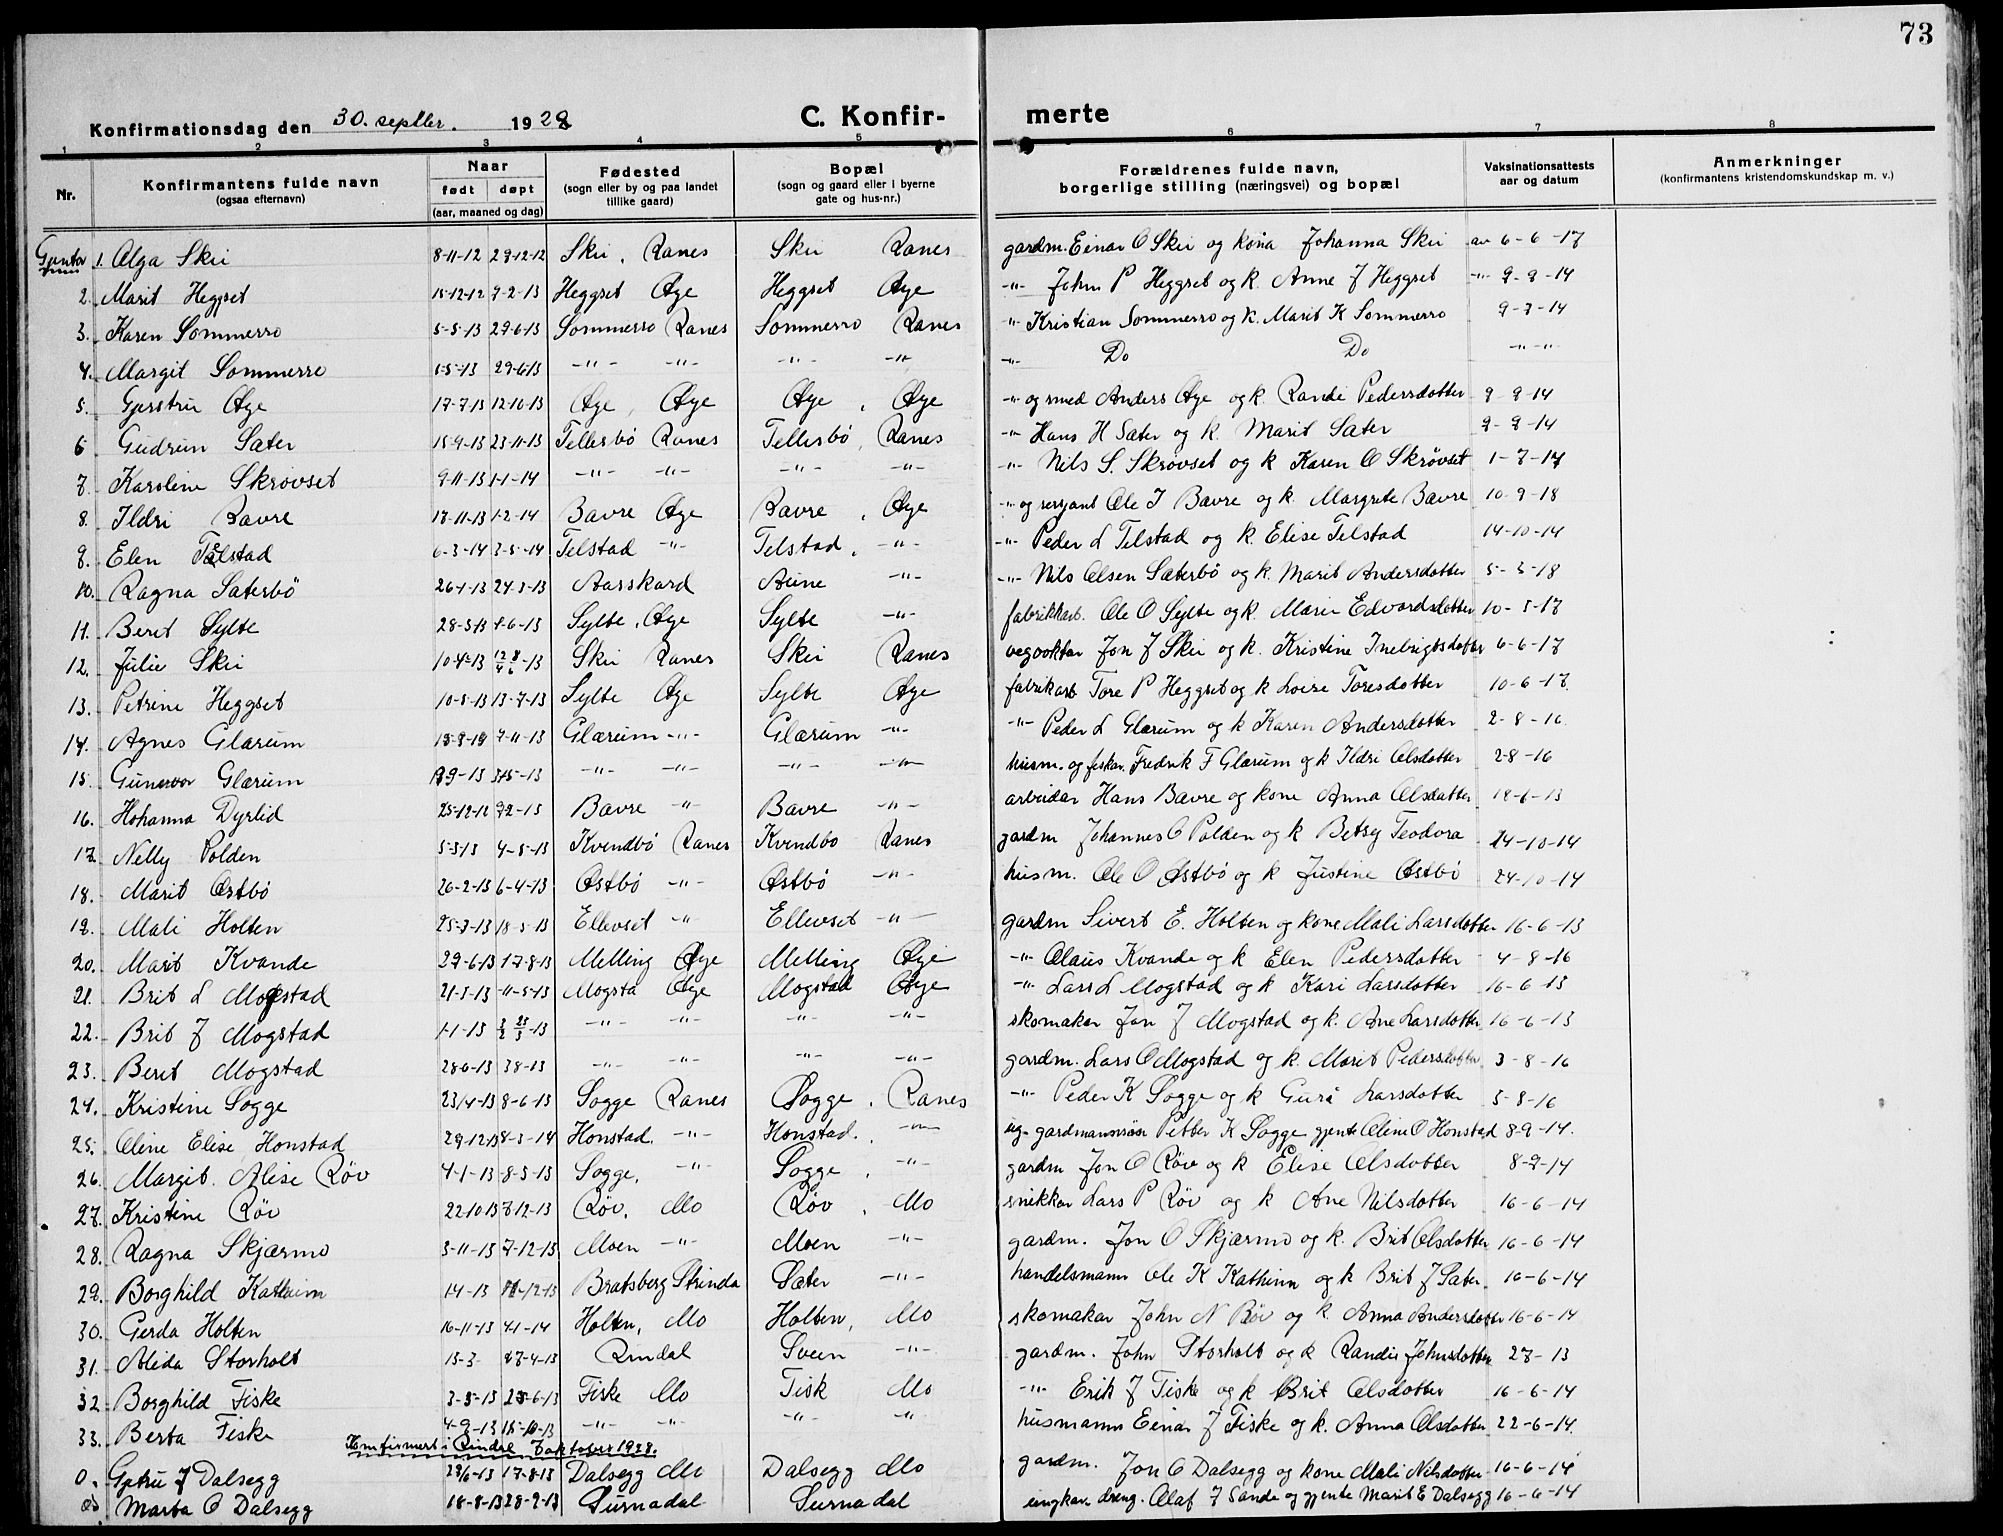 73
Konfirmationsdag den 30. septber. 1928 C. Konfir- merte
1 2 3 4 5 6 7 8
Nr. Konfirmantens fulde navn (ogsaa efternavn) Naar født døpt (aar, maaned og dag) Fødested (sogn eller by og paa landet tillike gaard) Bopæl (sogn og gaard eller i byerne gate og hus-nr.) Forældrenes fulde navn, borgerlige stilling (næringsvei) og bopæl Vaksinationsattests aar og datum Anmerkninger (konfirmantens kristendomskundskap m. v.)
1. Olga Skei 8-11-12 29-12-12 Skei, Ranes Skei Ranes gardm. Einar O Skei og kona Johanna Skei av 6-6-17
2. Marit Heggset 15-12-12 9-2-13 Heggset Øye Heggset Øye -"- John P Heggset og k. Anne J Heggset -"- 9-9-14
3. Karen Sommerro 5-5-13 29-6-13 Sommerro Ranes Sommerro Ranes -"- Kristian Sommerro og k. Marit K Sommerro 9-9-14
4. Margit Sommerro 1-5-13 29-6-13 -"- -"- -"- -"- -"- Do Do -"-"-
5. Gjertru Øye 17-7-13 12-10-13 Øye, Øye Øye, Øye -"- og smed Anders Øye og k. Randi Pedersdotter 9-9-14
6 Gudrun Sæter 15-9-13 23-11-13 Tellesbø Ranes Tellesbø, Ranes -"- Hans H Sæter og k. Marit Sæter 9-9-14
7. Karoline Skrøvset 9-11-13 1-1-14 -"- -"- -"- -"- -"- Nils S. Skrøvset og k Karen O Skrøvset 1-7-14
8. Ildri Bævre 17-11-13 1-2-14 Bævre Øye Bævre, Øye -"- og sersjant Ole I Bævre og k. Margrete Bævre 10-9-18
9. Elen Telstad 6-3-14 3-5-14 Telstad -"- Telstad, -"- -"- Peder L Telstad og k. Elise Telstad 14-10-14
10. Ragna Sæterbø 26-1-13 24-3-13 Aarskard Aune -"- -"- Nils Olsen Sæterbø og k. Marit Andersdotter 5-5-18
11. Beret Sylte 28-3-13 1-6-13 Sylte, Øye Sylte -"- fabrikkarb. Ole O Sylte og k. Marie Edvardsdotter 10-5-17
12. Julie Skei 10-4-13 Skei Ranes Skei Ranes vegvokter Jon J Skei og k. Kristine Inebrigtsdotter 6-6-17
13. Petrine Heggset 10-5-13 13-7-13 Sylte Øye Sylte Øye fabrikarb Tore P Heggset og k Loise Toresdotter 10-6-17.
14. Agnes Glærum 7-11-13 Glærum -"- Glærum -"- -"- Peder L Glærum og k Karen Andersdotter 2-8-16.
15. Gunvor Glærum -"- -"- -"- -"- husm. og fisker. Fredrik F Glærum og k Ildri Olsdotter 2-8-16
16. Hohanna Dyrlid 25-12-12 9-2-13 Bævre -"- Bævre -"- arbeidar Hans Bævre og kone Anna Olsdotter 18-6-13
17. Nelly Polden 5-3-13 4-5-13 Kvendbø Ranes Kvendbo Ranes gardm Johannes O Polden og k Betsy Teodora 24-10-14
18. Marit Østbø 26-2-13 6-4-13 Østbø -"- Østbø -"- husm. Ole O Østbø og k Justine Østbø 24-10-14
19. Mali Holten 25-3-13 18-5-13 Ellevset -"- Ellevset -"- gardm Sivert E. Holten og kone Mali Larsdotter 16-6-13
20. Marit Kvande 29-6-13 17-8-13 Melling Øye Melling Øye -"- Olaus Kvande og k Elen Pedersdotter 4-8-16
21. Brit L Mogstad 21-3-13 11-5-13 Mogsta Øye Mogstad Øye -"- Lars L Mogstad og k Kari Larsdotter 16-6-13
22. Brit J Mogstad 1-1-13 -"- -"- -"- -"- skomakar Jon J Mogstad og k. Ane Larsdotter 16-6-13
23. Berit Mogstad 28-6-13 3-8-13 -"- -"- -"- -"- gardm. Lars O Mogstad og k. Marit Pedersdotter 3-8-16
24. Kristine Sogge 23/4-13 8-6-13 Sogge Ranes Sogge, Ranes -"- Peder K Sogge og k Guri Larsdotter 5-8-16
25. Oline Elise Honstad 29-12-13 8-3-14 Honstad. -"- Honstad. -"- ug. gardmannssøn Petter K Sogge gjente Oline O Honstad 8-9-14.
26. Margit Alise Røv 4-1-13 8-3-13 Sogge, -"- Sogge, -"- gardm Jon O Røv og k Elise Olsdotter 8-9-14
27. Kristine Røv 22-10-13 7-12-13 Røv, Mo Røv, Mo snikkar Lars P Røv og k Ane Nilsdotter 16-6-14
28. Ragna Skjærmo 3-11-13 7-12-13 Moen -"- Moen -"- gardm. Jon O Skjærmo og k. Brit Olsdotter 16-6-14
29. Borghild Katheim Bratsberg Strinda Sæter -"- handelsmann Ole K Kathinn og k Brit J Sæter 16-6-14
30. Gerda Holten 16-11-13 4-1-14 Holten, Mo Holten, Mo skomakar John N Røv og k Anna Andersdotter 16-6-14
31. Alida Storholt 15-3- 27-4-13 Rindal Svein -"- gardm. John Storholt og k Randi Johnsdotter
32 Borghild Fiske 3-5-13 Fiske Mo Fisk Mo -"- Erik J Fiske og k Brit Olsdotter 16-6-14
33. Berta Fiske 4-9-13 -"- -"- -"- -"- husmann Einar J Fiske og k. Anna Olsdotter 22-6-14.
Konfirmert i Rindal 7 oktober 1928.
0. Gjetru J Dalsegg 29/6-13 17-8-13 Dalsegg Mo Dalsegg Mo gardm. Jon O Dalsegg og kone Mali Nilsdotter 16-6-14
Marta O Dalsegg 18-8-13 28-9-13 Surnadal Surnadal ungkar dreng. Olaf J Sande og gjente Marit E Dalsegg 16-6-14